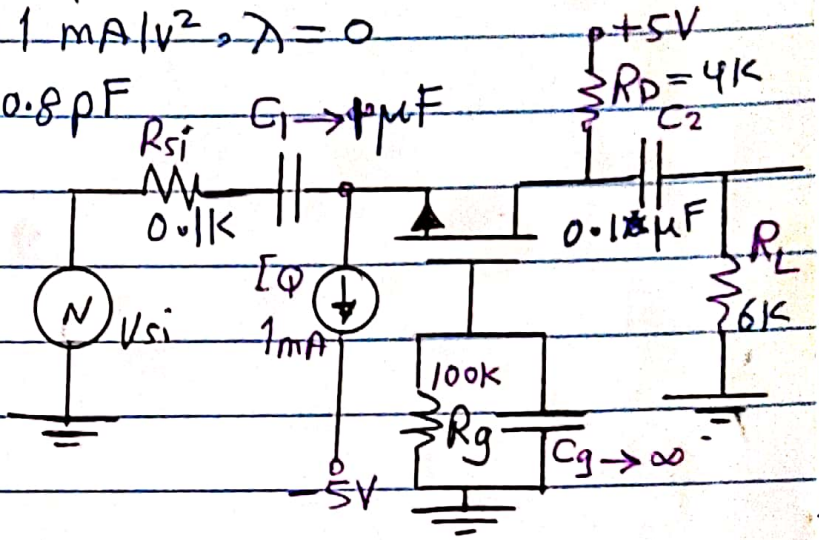 1 mA/V², λ = 0
+5V
0.8pF
C₁→1μF
R_D = 4K
C₂
Rsi
0.1K
0.1 μF
R_L
I_Q
Vsi
1mA
6K
100K
Rg
Cg→∞
-5V